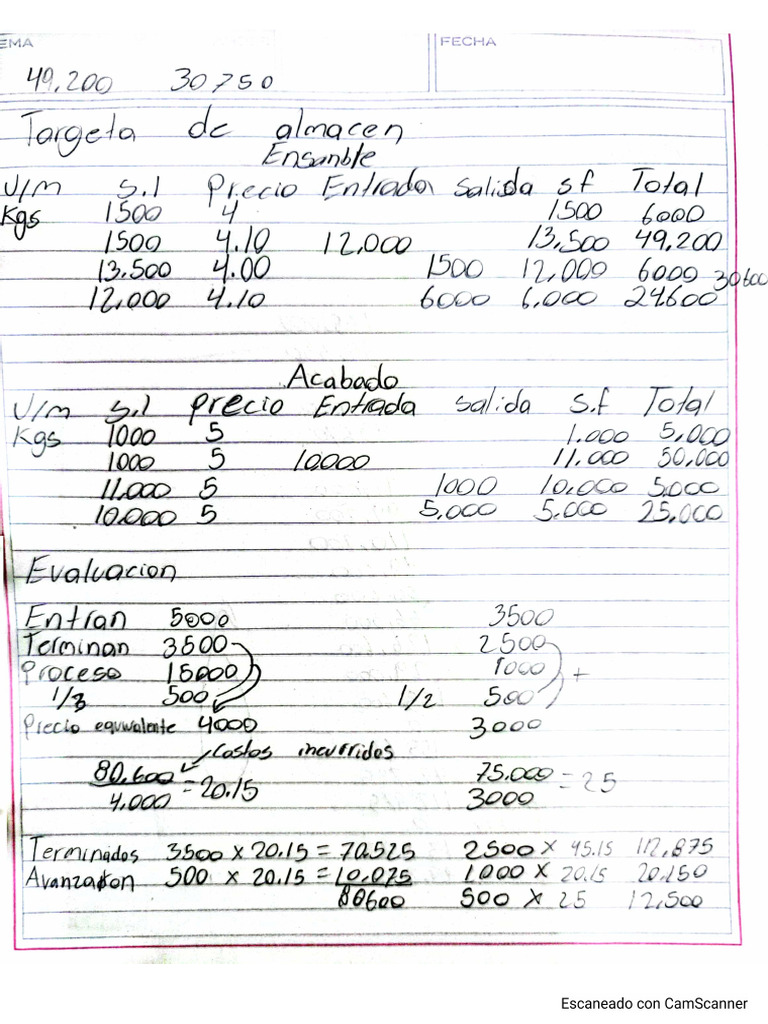 EMA FECHA
49.200 30750
Targeta de almacen
Ensanble
U/M S.I Precio Entrada Salisda sf Total
Kgs 1500 4 1500 6000
1500 4.10 12,000 13,500 49.200
13.500 4.00 1500 12,000 6000 30600
12,000 4.10 6000 6,000 24.600
Acabado
U/m S.I precio Entrada salida S.f Total
Kgs 1000 5 1.000 5,000
1000 5 10000 11.000 50,000
11.000 5 1000 10,000 5.000
10.000 5 5,000 5.000 25,000
Evaluacion
Entran 5000 3500
Terminan 3500 2500
Proceso 15000 1000 +
1/3 500 1/2 500
Precio equivalente 4000 3000
Costos incurridos
80,600 = 20.15 75.000 = 25
4,000 3000
Terminados 3500 x 20.15 = 70.525 2500 x 45.15 112,875
500 x 20.15 = 10,075 1000 x 20.15 20,150
80600 500 x 25 12,500
Escaneado con CamScanner